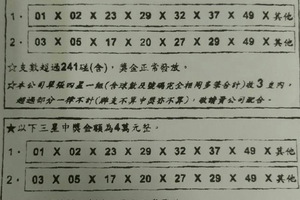 1. 01 X 02 X 23 X 29 X 32 X 37 X 49 X 其他
2. 03 X 05 X 17 X 20 X 27 X 29 X 49 X 其他
☆支數超過241碰(含)，獎金正常發放。
☆本公司單張四星一組(含球數及號碼完全相同多張合計)收3支內，
超過部分一律不計(牌支不算中獎亦不算)，敬請貴公司配合。
★以下三星中獎金額為4萬元整。
1. 01 X 02 X 23 X 29 X 32 X 37 X 49 X 其他
2. 03 X 05 X 17 X 20 X 27 X 29 X 49 X 其他